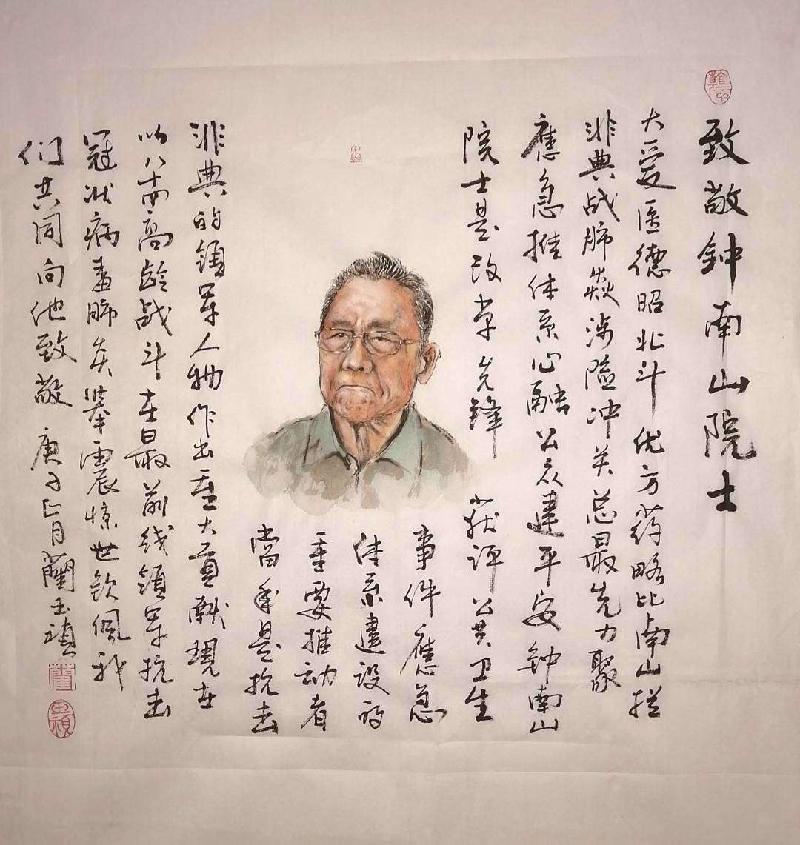 致敬鈡南山院士
大爱医德昭北斗优方药略比南山拦
非典战肺炎涉险冲关总最先力聚
應急推体系心融公众建平安鈡南山
院士是改革先锋 获评公共卫生
事件應急
体系建设的
重要推动者
當年是抗击
非典的领军人物作出重大贡献现在
以八十高龄战斗在最前线领军抗击
冠状病毒肺炎举震惊世钦佩我
们共同向他致敬 庚子正月蘭玉祯